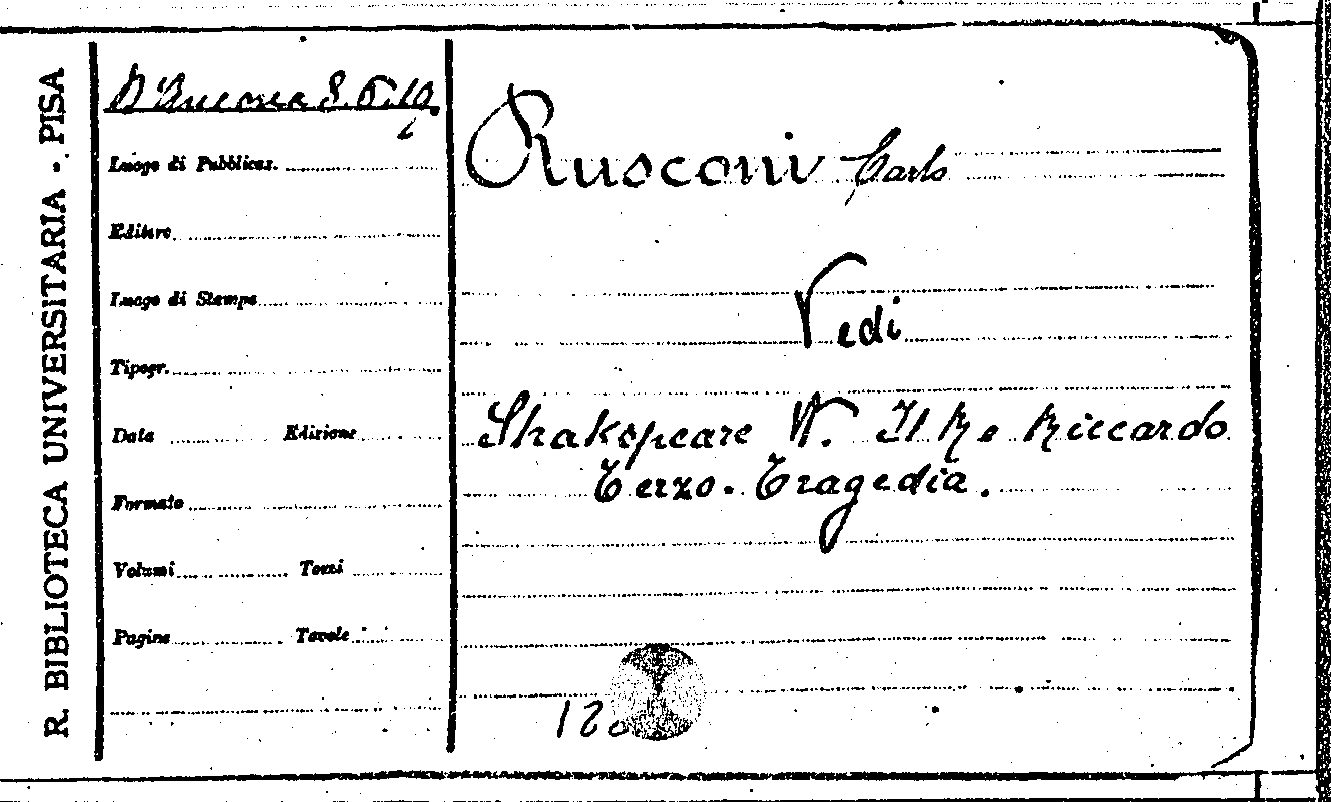 R. BIBLIOTECA UNIVERSITARIA - PISA
D'Ancona
Luogo di Pubblicaz.
Editore
Luogo di Stampa
Tipogr.
Data Edizione
Formato
Volumi Tomi
Pagine Tavole
Rusconi Carlo
Vedi
Shakspeare W. Il Re Riccardo
Terzo. Tragedia.